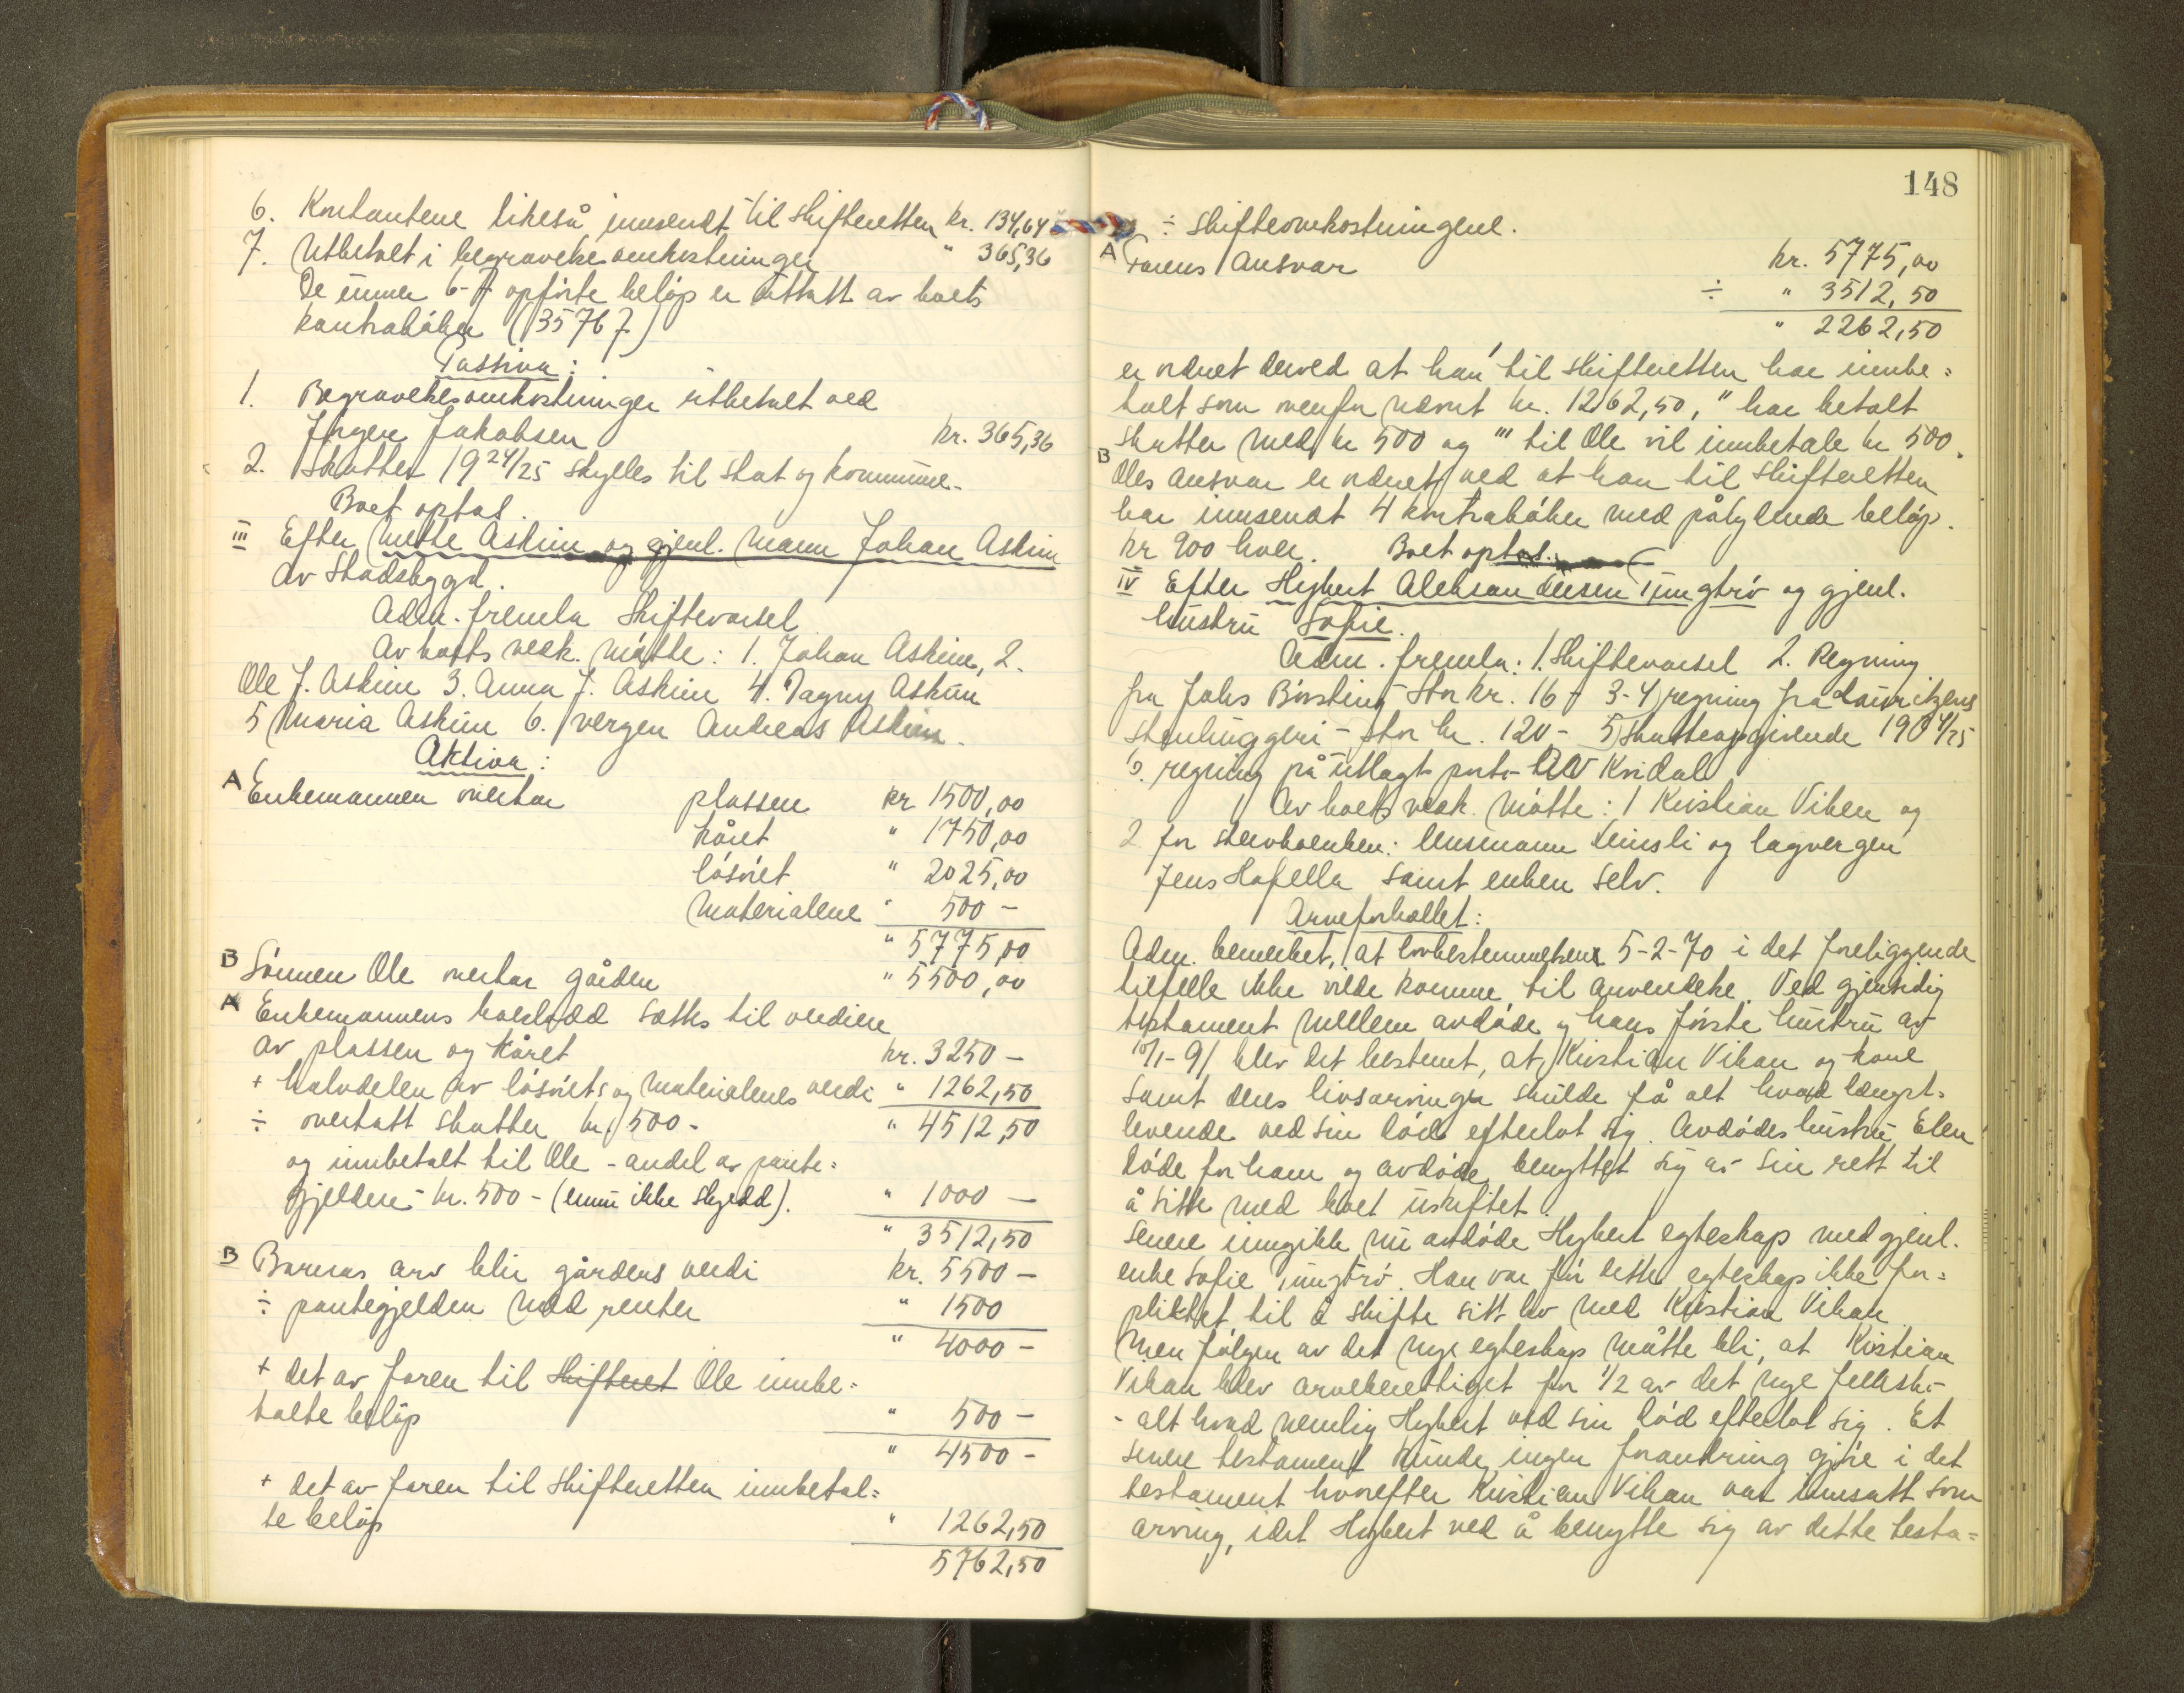 6. Kontantene likeså innsendt til skifteretten kr. 134,64
7. Utbetalt i begravelsesomkostninger " 365,36
De under 6-7 opførte beløp er uttatt av boets
kontrabøker (35767)
Passiva:
1. Begravelsesomkostninger utbetalt ved
Jørgen Jakobsen kr. 365,36
2. Skatter 19 24/25 skylles til stat og kommune.
Boet optas.
III Efter Mette Askim og gjenl. mann Johan Askim
av Stadsbygd.
Adm. fremla Skiftevarsel
Av boets vedk. møtte: 1. Johan Askim, 2.
Ole J. Askim 3. Anna J. Askim 4. Dagny Askim
5 Maria Askim 6. vergen Andreas Askim.
Aktiva:
A Enkemannen overtar plassen kr 1500,00
kåret " 1750,00
løsøret " 2025,00
materialene " 500 -
" 5775,00
B Sønnen Ole overtar gården " 5500,00
A Enkemannens boeslodd sættes til verdien
av plassen og kåret kr. 3250 -
+ halvdelen av løsørets og materialenes verdi " 1262,50
÷ overtatt skatter kr. 500 - " 4512,50
og innbetalt til Ole - andel av pante=
gjelden - kr. 500 - (ennu ikke skjedd). " 1000 -
" 3512,50
B Barnas arv blir gårdens verdi kr. 5500 -
÷ pantegjelden med renter " 1500
" 4000 -
+ det av faren til Skifteret Ole innbe=
talte beløp " 500 -
" 4500 -
+ det av faren til skifteretten innbetal=
te beløp " 1262,50
5762,50
148
÷ skifteomkostningene.
A Farens ansvar kr. 5775,00
÷ " 3512,50
" 2262,50
er ordnet derved at han ' til skifteretten har innbe=
talt som ovenfor nævnt kr. 1262,50, " har betalt
skatter med kr 500 og ''' til Ole vil innbetale kr 500.
B Oles ansvar er ordnet ved at han til skifteretten
har innsendt 4 kontrabøker med pålydende beløp.
kr 900 hver. Boet optas.
IV Efter Hybert Aleksandersen Tungtrø og gjenl.
hustru Sofie.
Adm. fremla: 1. Skiftevarsel 2. Regning
fra Johs Børsting stor kr. 16 - 3-4 regning fra Lauritzens
Stenhuggeri - stor kr. 120 - 5 Skatteopgivende 1924/25
6. regning på utlagt porto
Av boets vedk. møtte: 1 Kristian Vikan og
2 for stervboenken: lensmann og lagvergen
Jens Hofella samt enken selv.
Arveforholdet:
Adm. bemerket, at lovbestemmelsene 5-2-70 i det foreliggende
tilfelle ikke vilde komme til anvendelse. Ved gjensidig
testament mellem avdøde og hans første hustru av
10/1-91 blev det bestemt, at Kristian Vikan og kone
samt deres livsarvinger skulde få alt hvad længst=
levende ved sin død efterlot sig. Avdødes hustru Elen
døde før ham og avdøde benyttet sig av sin rett til
å sitte med boet uskiftet.
Senere inngikk nu avdøde Hybert egteskap med gjenl.
enke Sofie Tungtrø. Han var før dette egteskap ikke for=
pliktet til å skifte sitt bo med Kristian Vikan
Men følgen av det nye egteskap måtte bli, at Kristian
Vikan blev arveberettiget for 1/2 av det nye fellesbo
- alt hvad nemlig Hybert ved sin død efterlot sig. Et
senere testament kunde ingen forandring gjøre i det
testament hvorefter Kristian Vikan var innsatt som
arving, idet Hybert ved å benytte sig av dette testa=